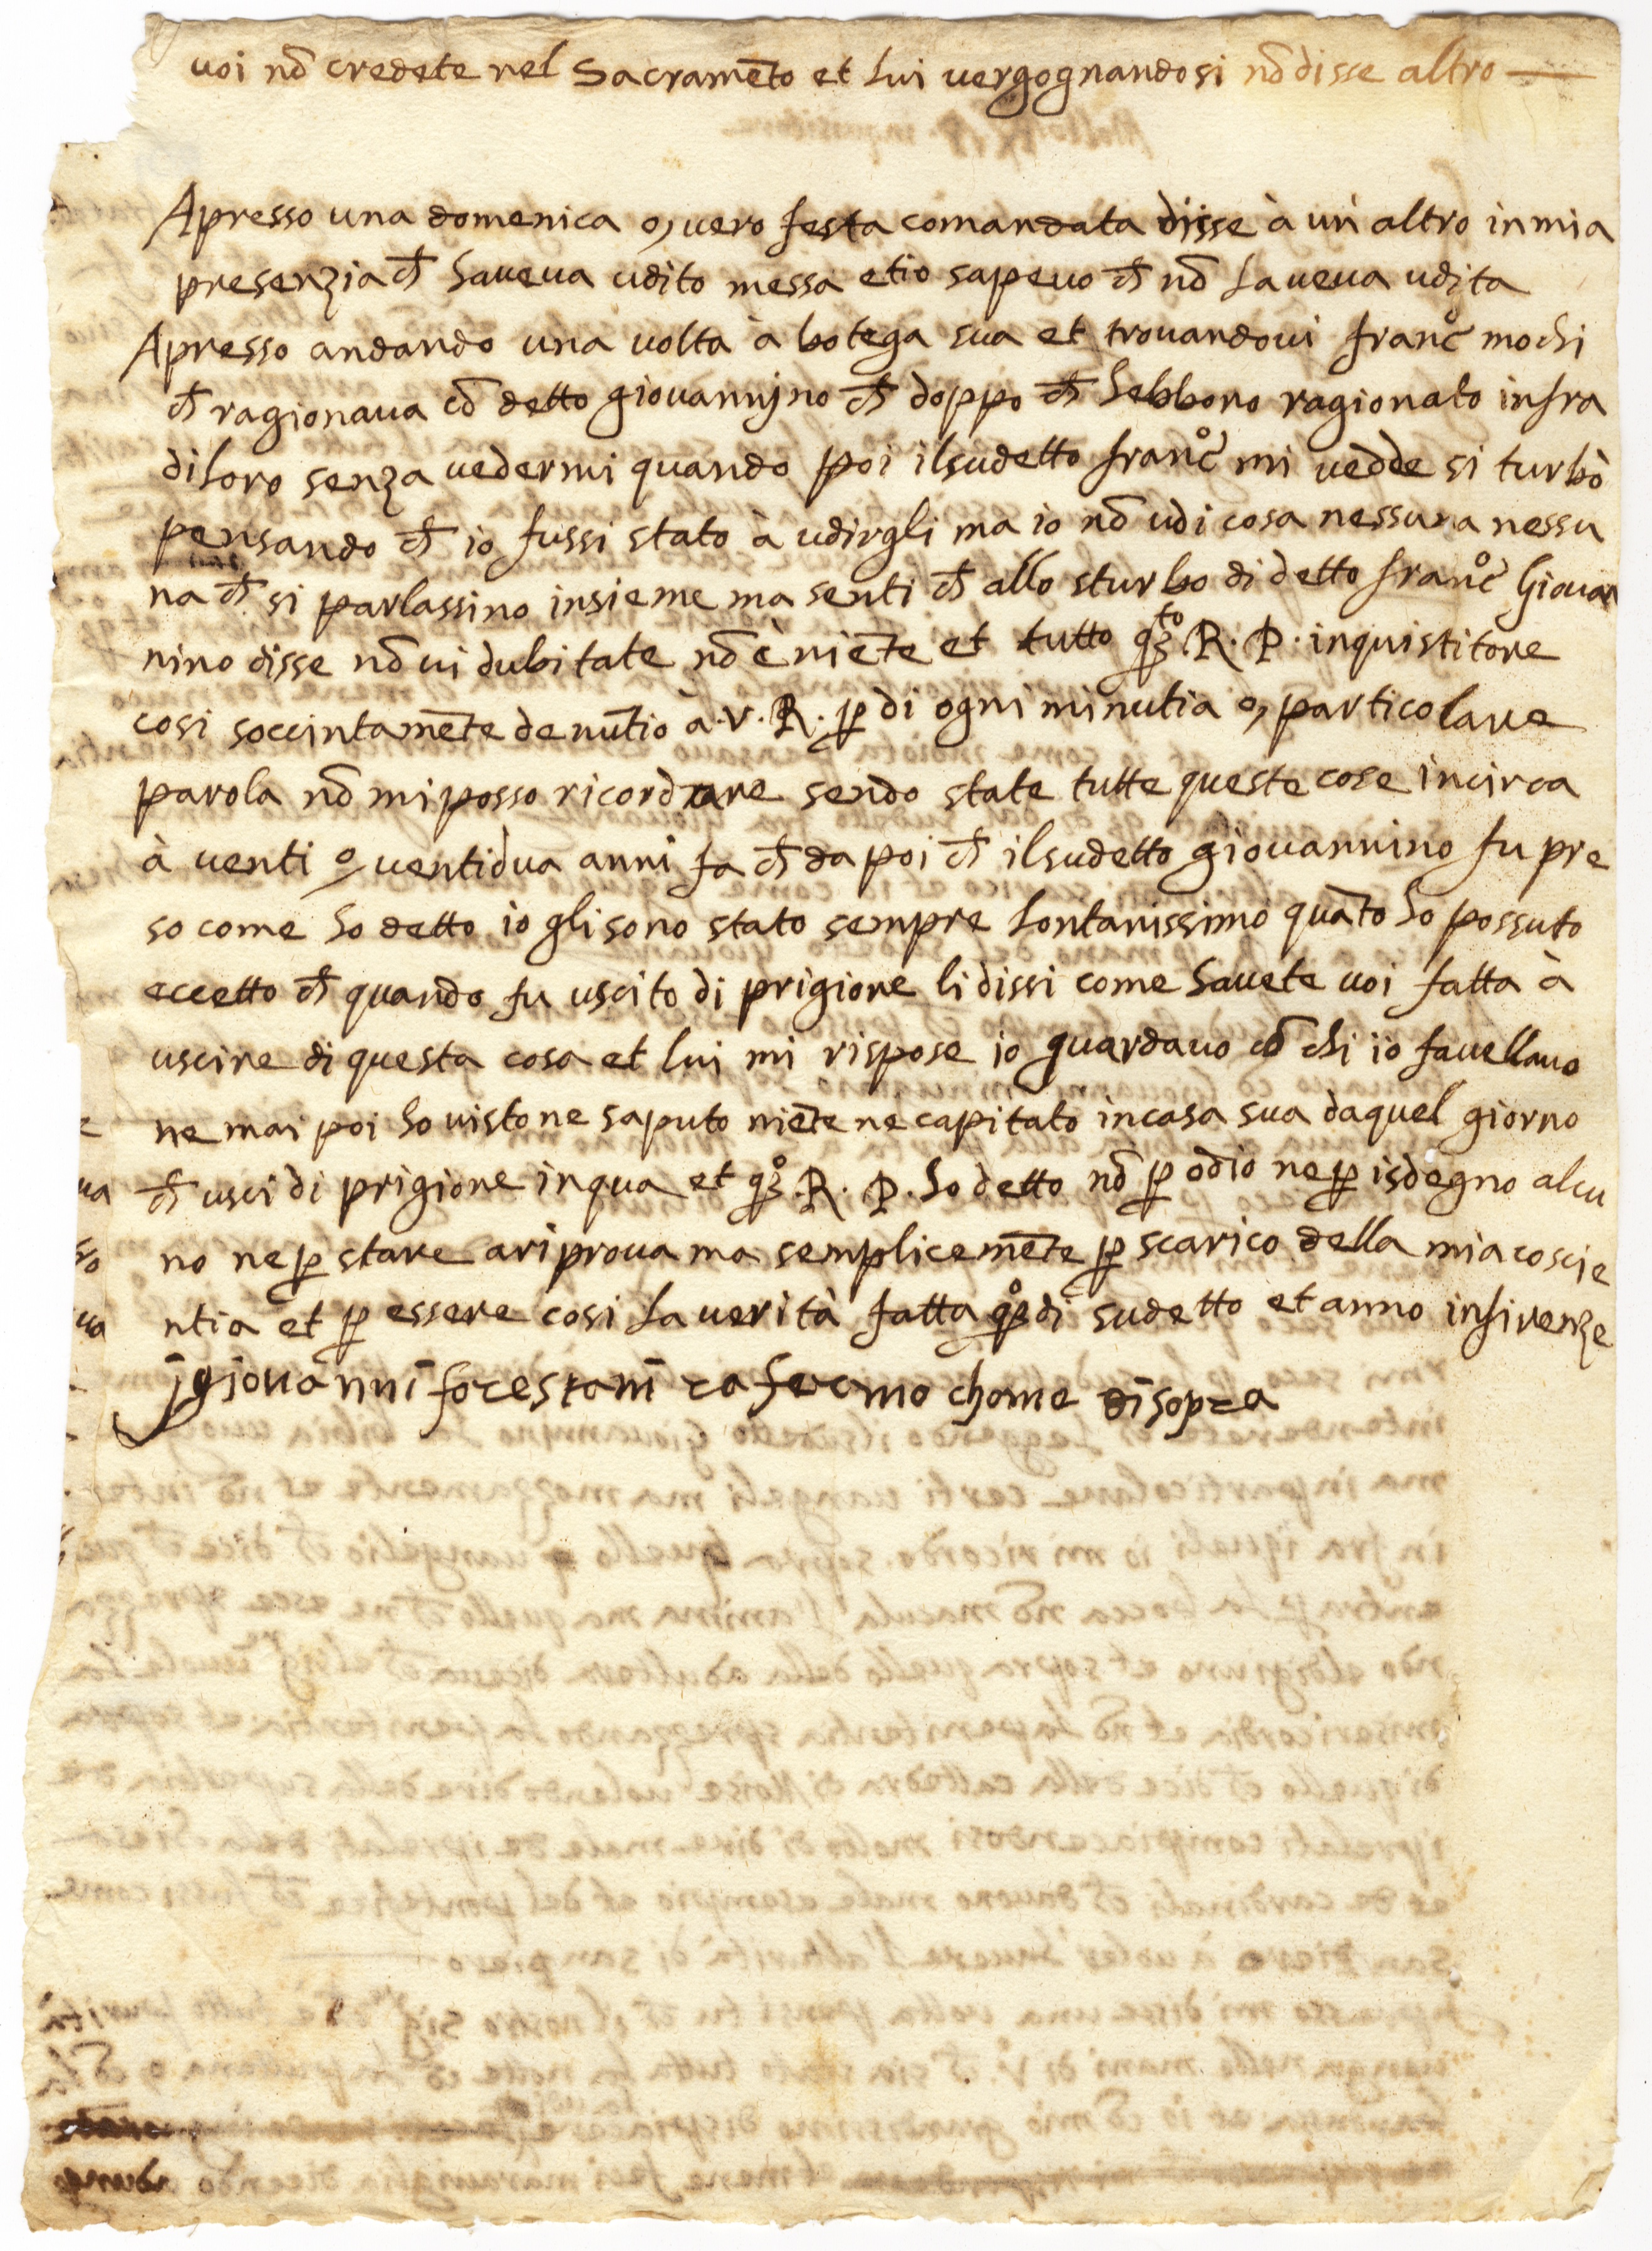 voi nō credete nel Sacramēto et lui vergognandosi nō disse altro —
Apresso una domenica o, vero festa comandata disse à un altro in mia
presenzia ch̄ haveva udito messa et io sapevo ch̄ nō laveva udita
Apresso andando una volta à botega sua et trovandovi franc̊ mochi
ch̄ ragionava cō detto giovannino ch̄ doppo ch̄ hebbono ragionato infra
di loro senza vedermi quando poi il sudetto franc̊ mi vedde si turbò
pensando ch̄ io fussi stato à udirgli ma io nō udi cosa nessuna nessu
na ch̄ si parlassino insieme ma senti ch̄ allo sturbo di detto franc̊ Giovan
nino disse nō vi dubitate nō è niēte et tutto qsto R. P. inquistitore
cosi soccintamēte denūtio à .V. R. p̱ di ogni minutia o, particolare
parola nō mi posso ricordrare sendo state tutte queste cose incirca
à venti o, ventidua anni fa ch̄ da poi ch̄ il sudetto giovannino fu pre
so come ho detto io gli sono stato sempre lontanissimo quāto ho possuto
eccetto ch̄ quando fu uscito di prigione li dissi come havete voi fatta à
uscire di questa cosa et lui mi rispose io guardavo cō chi io favellavo
ne mai poi ho visto ne saputo niēte ne capitato in casa sua da quel giorno
ch̄ usci di prigione in qua et qs̊ .R. P. ho detto nō p̱ odio ne p̱ isdegno alcu
no ne p̱ stare a riprova ma semplicemēte p̱ scarico della mia coscie
ntia et p̱ essere cosi la verità fatta qs̊ di sudetto et anno in firenze
j giovannj forestanj rafermo chome di sopra